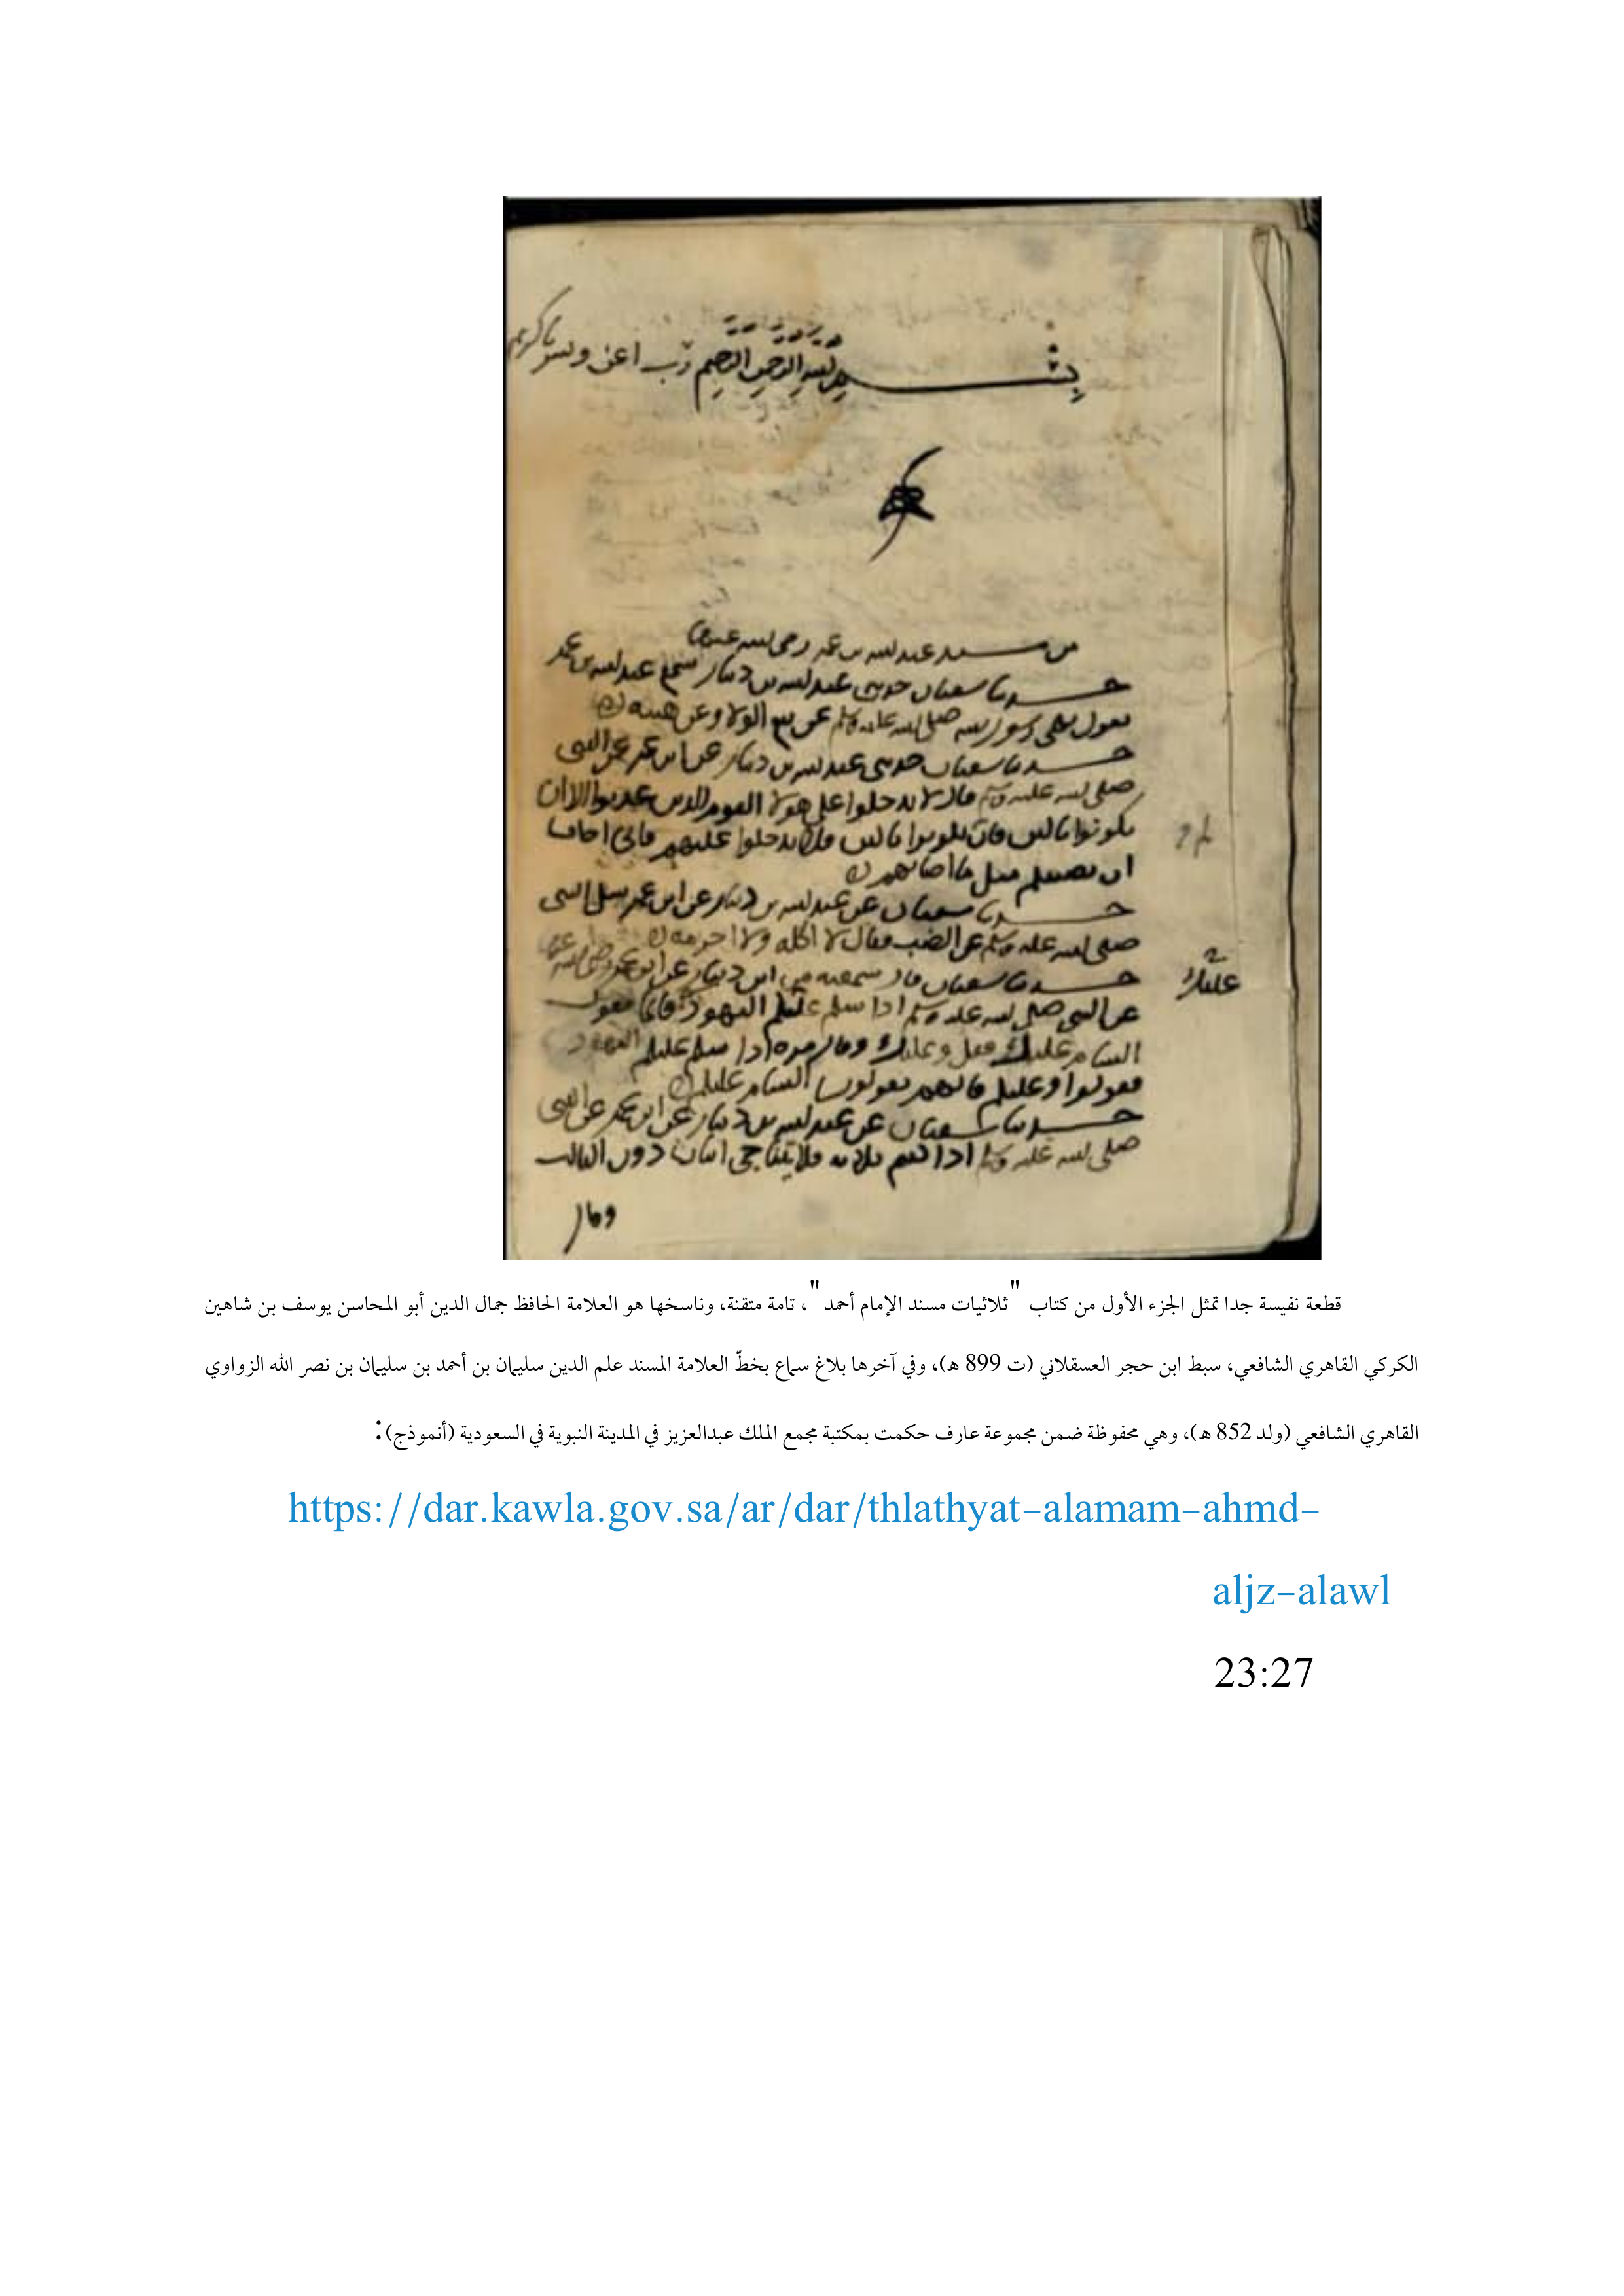 بسم الله الرحمن الرحيم رب اعن ويسر يا كريم
من مسند عبد الله بن عمر رضي الله عنهما
حدثنا سفيان حدثني عبد الله بن دينار سمع عبد الله بن عمر
يقول نهى رسول الله صلى الله عليه وسلم عن بيع الولاء وعن هبته
حدثنا سفيان حدثني عبد الله بن دينار عن ابن عمر عن النبي
صلى الله عليه وسلم قال لا تدخلوا على هولا القوم الذين عذبوا الا ان
تكونوا باكين فان لم تكونوا باكين فلا تدخلوا عليهم فاني اخاف
ان يصيبكم مثل ما اصابهم
حدثنا سفيان عن عبد الله بن دينار عن ابن عمر سئل النبي
صلى الله عليه وسلم عن الضب فقال لا اكله ولا احرمه
حدثنا سفيان قال سمعته من ابن دينار عن ابن عمر رضي الله عنهما
عليك
عن النبي صلى الله عليه وسلم اذا سلم عليكم اليهودي فانما يقول
السام عليك فقل وعليك وقال مرة اذا سلم عليكم اليهود
فقولوا وعليكم فانهم يقولون السام عليكم
حدثنا سفيان عن عبد الله بن دينار عن ابن عمر عن النبي
صلى الله عليه وسلم اذا كنتم ثلاثة فلا يتناجى اثنان دون الثالث
وقال
قطعة نفيسة جدا تمثل الجزء الأول من كتاب "ثلاثيات مسند الإمام أحمد"، تامة متقنة، وناسخها هو العلامة الحافظ جمال الدين أبو المحاسن يوسف بن شاهين
الكركي القاهري الشافعي، سبط ابن حجر العسقلاني (ت 899 هـ)، وفي آخرها بلاغ سماع بخطّ العلامة المسند علم الدين سليمان بن أحمد بن سليمان بن نصر الله الزواوي
القاهري الشافعي (ولد 852 هـ)، وهي محفوظة ضمن مجموعة عارف حكمت بمكتبة مجمع الملك عبدالعزيز في المدينة النبوية في السعودية (أنموذج):
https://dar.kawla.gov.sa/ar/dar/thlathyat-alamam-ahmd-
aljz-alawl
23:27